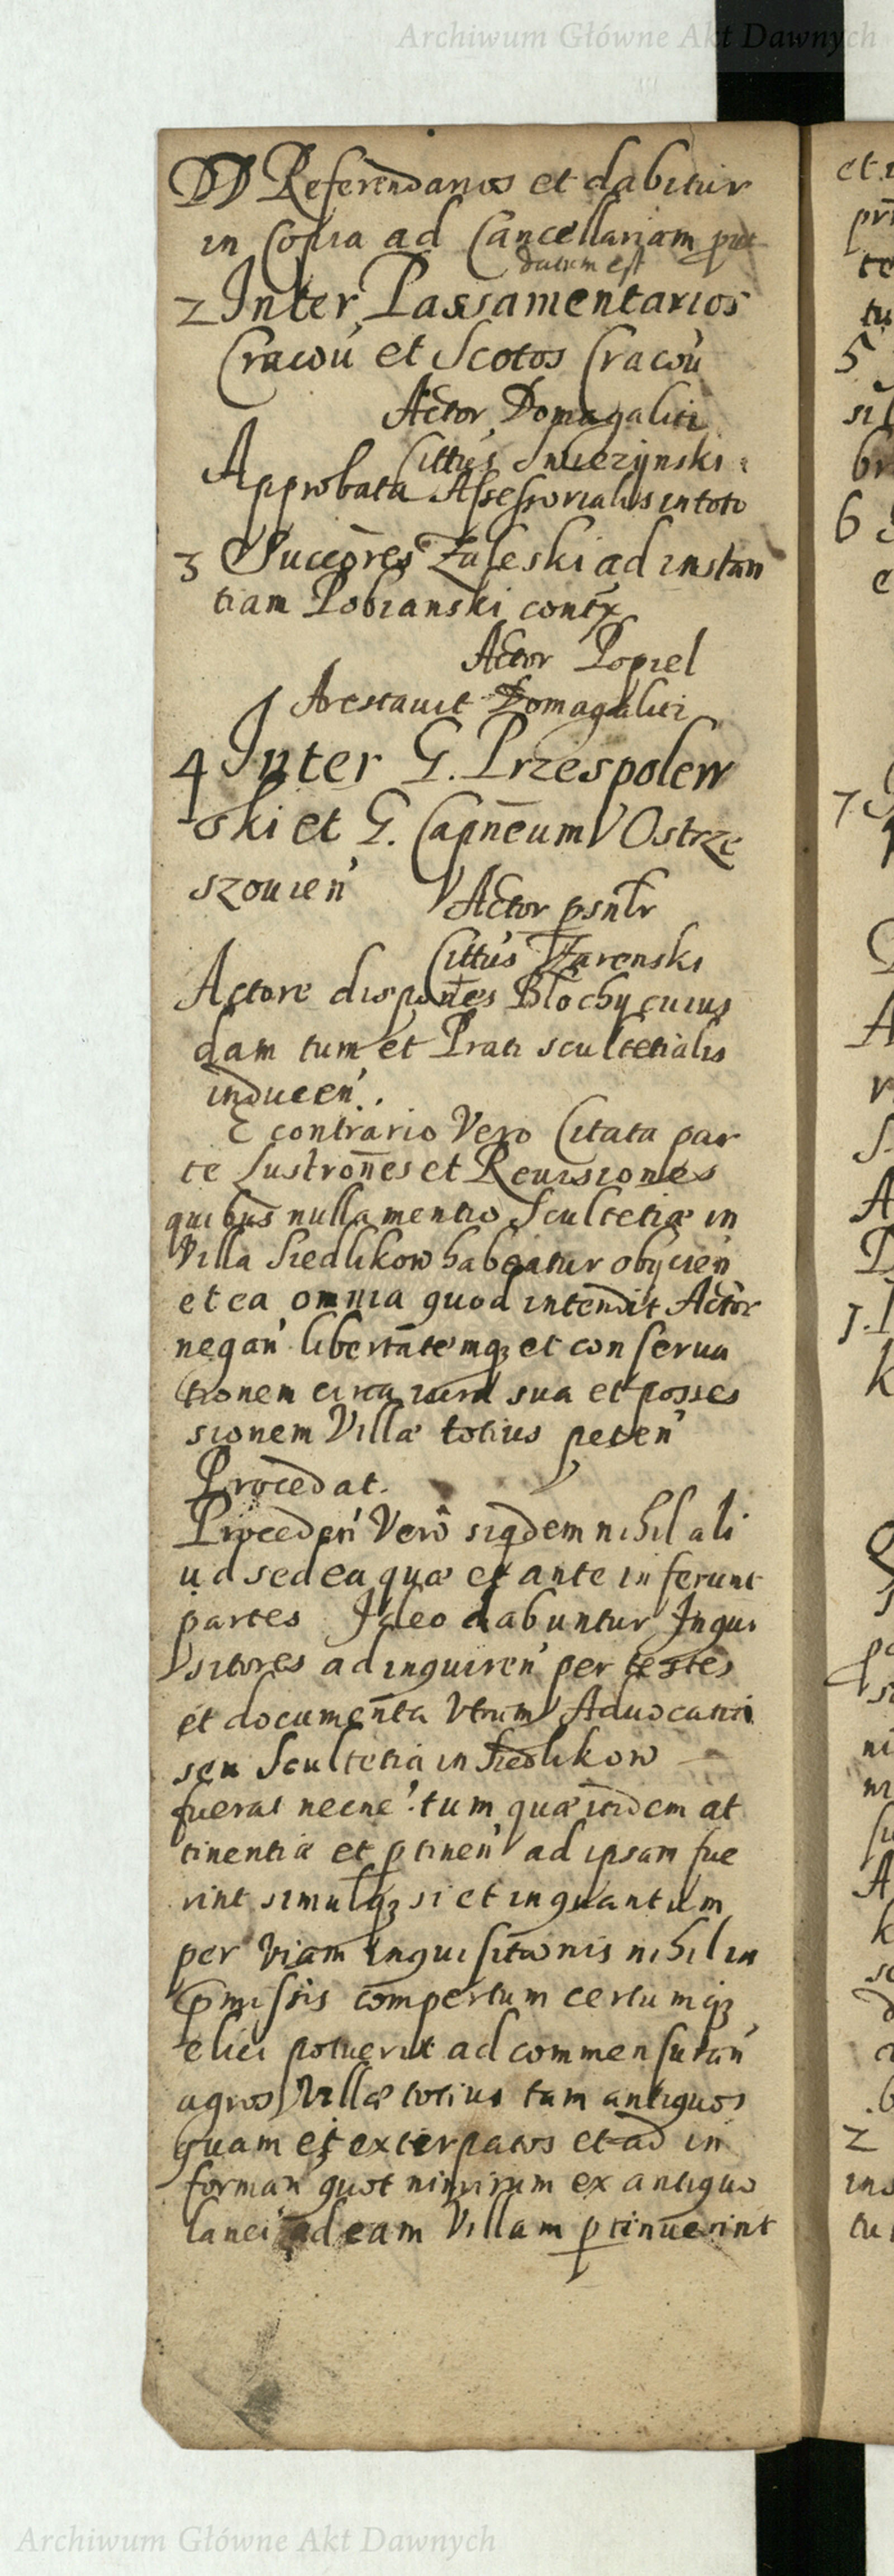 Archiwum Główne Akt Dawnych
DD Referendarios et dabitur
in Copia ad Cancellariam prut
datum est
2 Inter Passamentarios
Cracoú et Scotos Cracoú
Actor Domagalicz
Cittús Swiezÿnski
Approbata Assessorialis in toto
3 Succōres Zaleski ad instan
tiam Pobianski contx
Actor Popiel
Arestauit Domagalicz
4 Inter G. Przespolew
ski et G. Capnēum Ostrze
szouien'
Actor psnlr
Cittús Zarenski
Actore disponēs Blochy cuius
dam tum et Prati scultetialis
inducen'.
E contrario Vero Citata par
te Lustronēs et Reuisiones
quibus nulla mentio Scultetiæ in
Villa Siedlikow habeatur obijcien'
et ea omnia quod intendit Actor
negan' libertatemq; et conserua
tionem circa iura sua et posses
sionem Villæ totius peten'
Procedat.
Proceden' Vero siqdem nihil ali
ud sed ea quæ et ante inferunt
partes Ideo dabuntur Inqui
sitores ad inquiren' per testes
et documenta Vtrum Aduocatia
seu Scultetia in Siedlikow
fuerat necne? tum quæ itidem at
tinentia et ptinen' ad ipsam fue
rint simulq; si et inquantum
per Viam inquisitionis nihil in
pmissis compertum certumq;
elici potuerit ad commensuran'
agros Villæ totius tam antiquos
quam et exterpatos et ad in
forman' quot nimirum ex antiquo
lanei ad eam Villam ptinuerint
Archiwum Główne Akt Dawnych